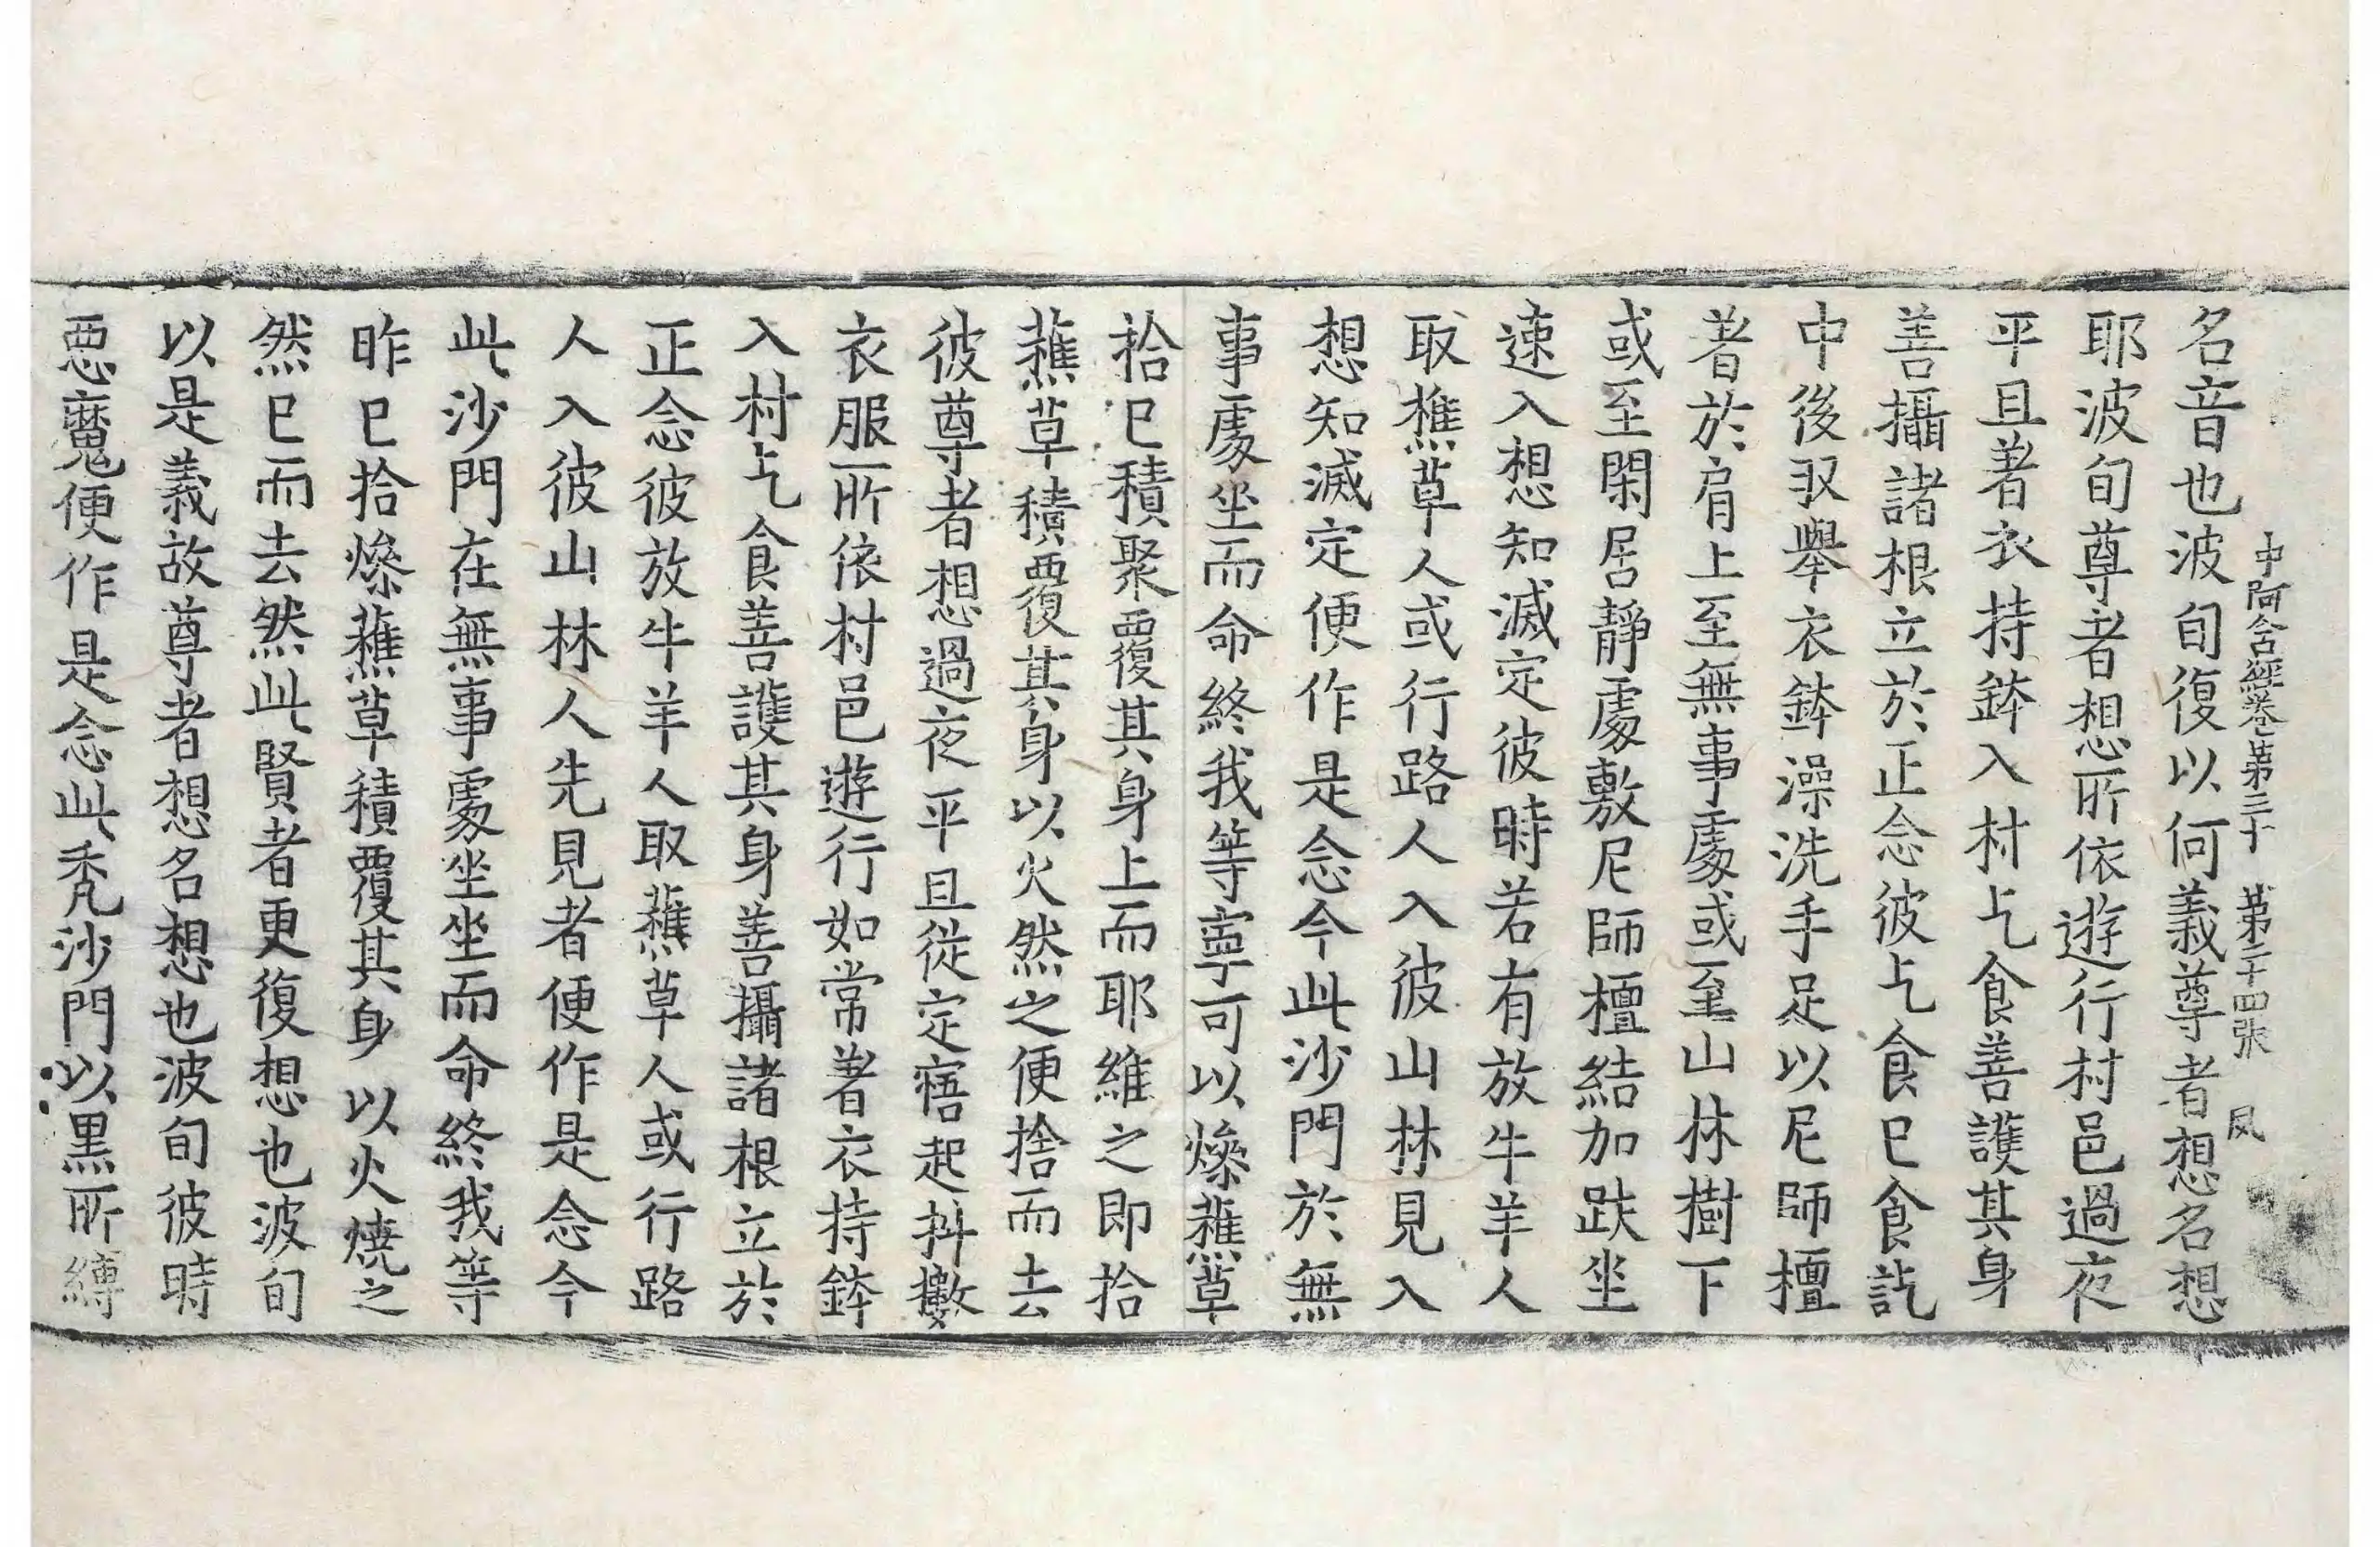 中阿含經卷第三十　第二十四张　凤
名音也波旬復以何義尊者想名想
耶波旬尊者想所依遊行村邑過夜
平旦著衣持鉢入村乞食善護其身
善攝諸根立於正念彼乞食已食訖
中後収舉衣鉢澡洗手足以尼師檀
著於肩上至無事處或至山林樹下
或至閑居靜處敷尼師檀結加趺坐
速入想知滅定彼時若有放牛羊人
取樵草人或行路人入彼山林見入
想知滅定便作是念今此沙門於無
事處坐而命終我等寧可以燥蕉草
拾已積聚覆其身上而耶維之即拾
蕉草積覆其身以火然之便捨而去
彼尊者想過夜平旦從定寤起抖擻
衣服所依村邑遊行如常著衣持鉢
入村乞食善護其身善攝諸根立於
正念彼放牛羊人取蕉草人或行路
人入彼山林人先見者便作是念今
此沙門在無事處坐坐而命終我等
昨已拾燥蕉草積覆其身以火燒之
然已而去然此賢者更復想也波旬
以是義故尊者想名想也波旬彼時
惡魔便作是念此禿沙門以黑所縛